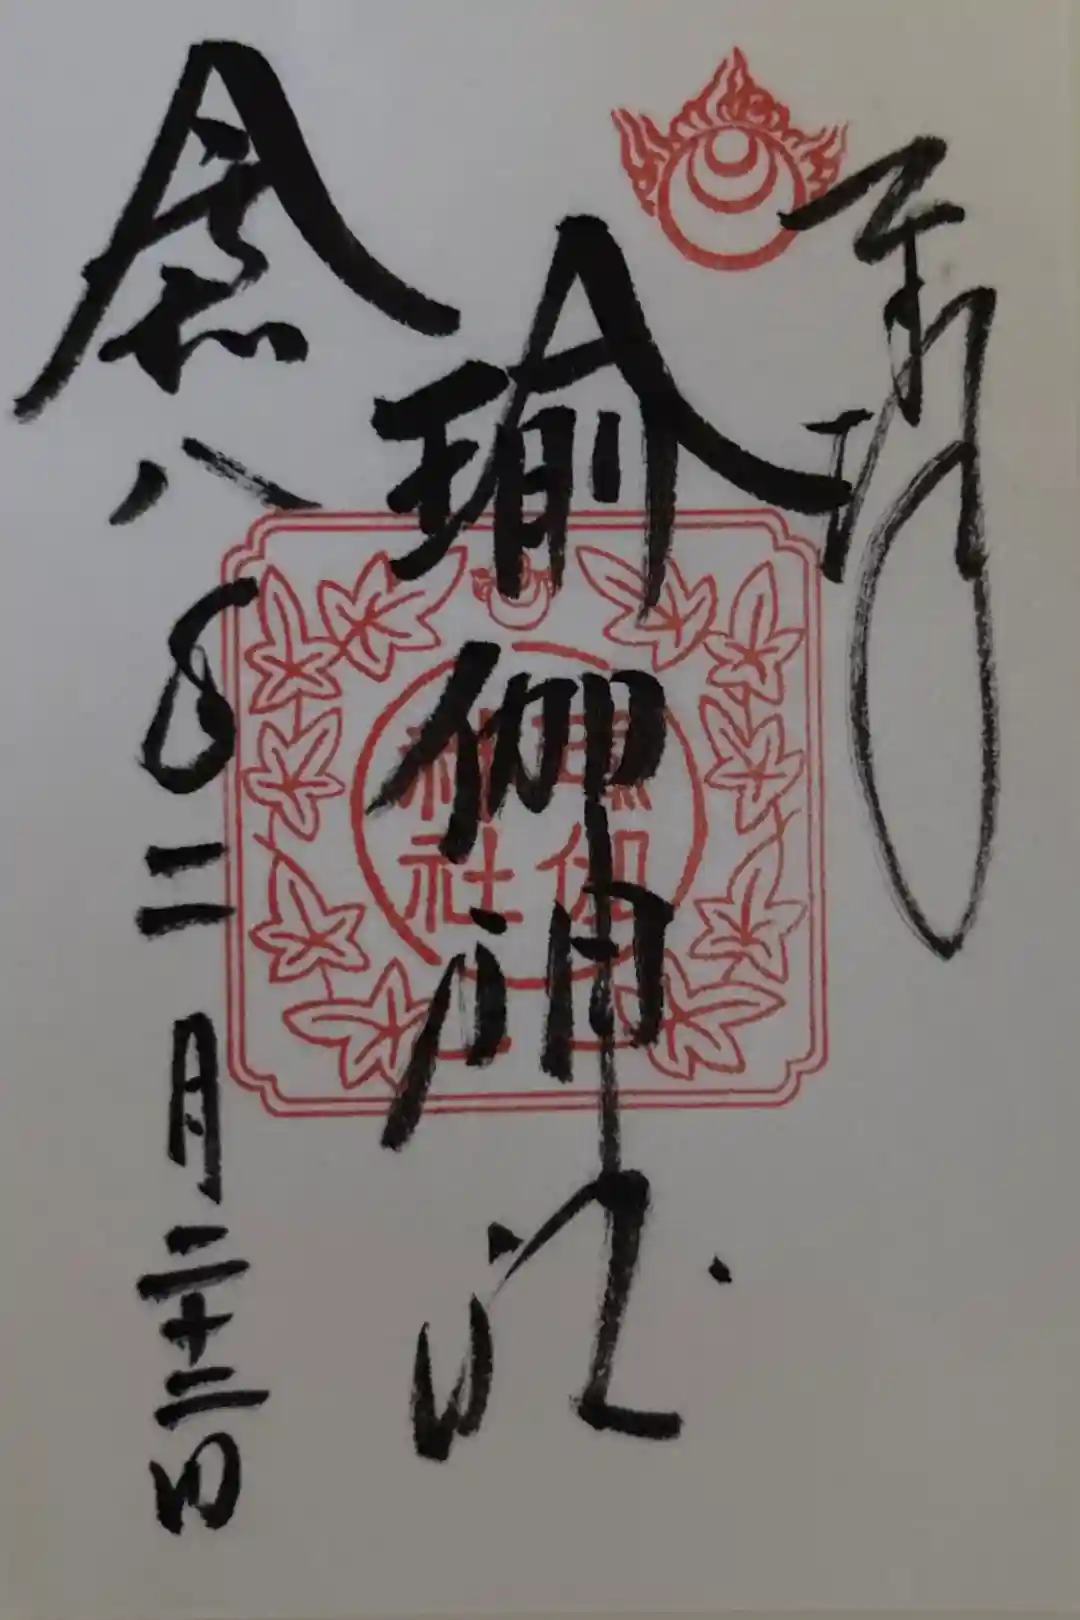 奉拝
瑜伽神社
令和八年二月二十三日
瑜伽
神社